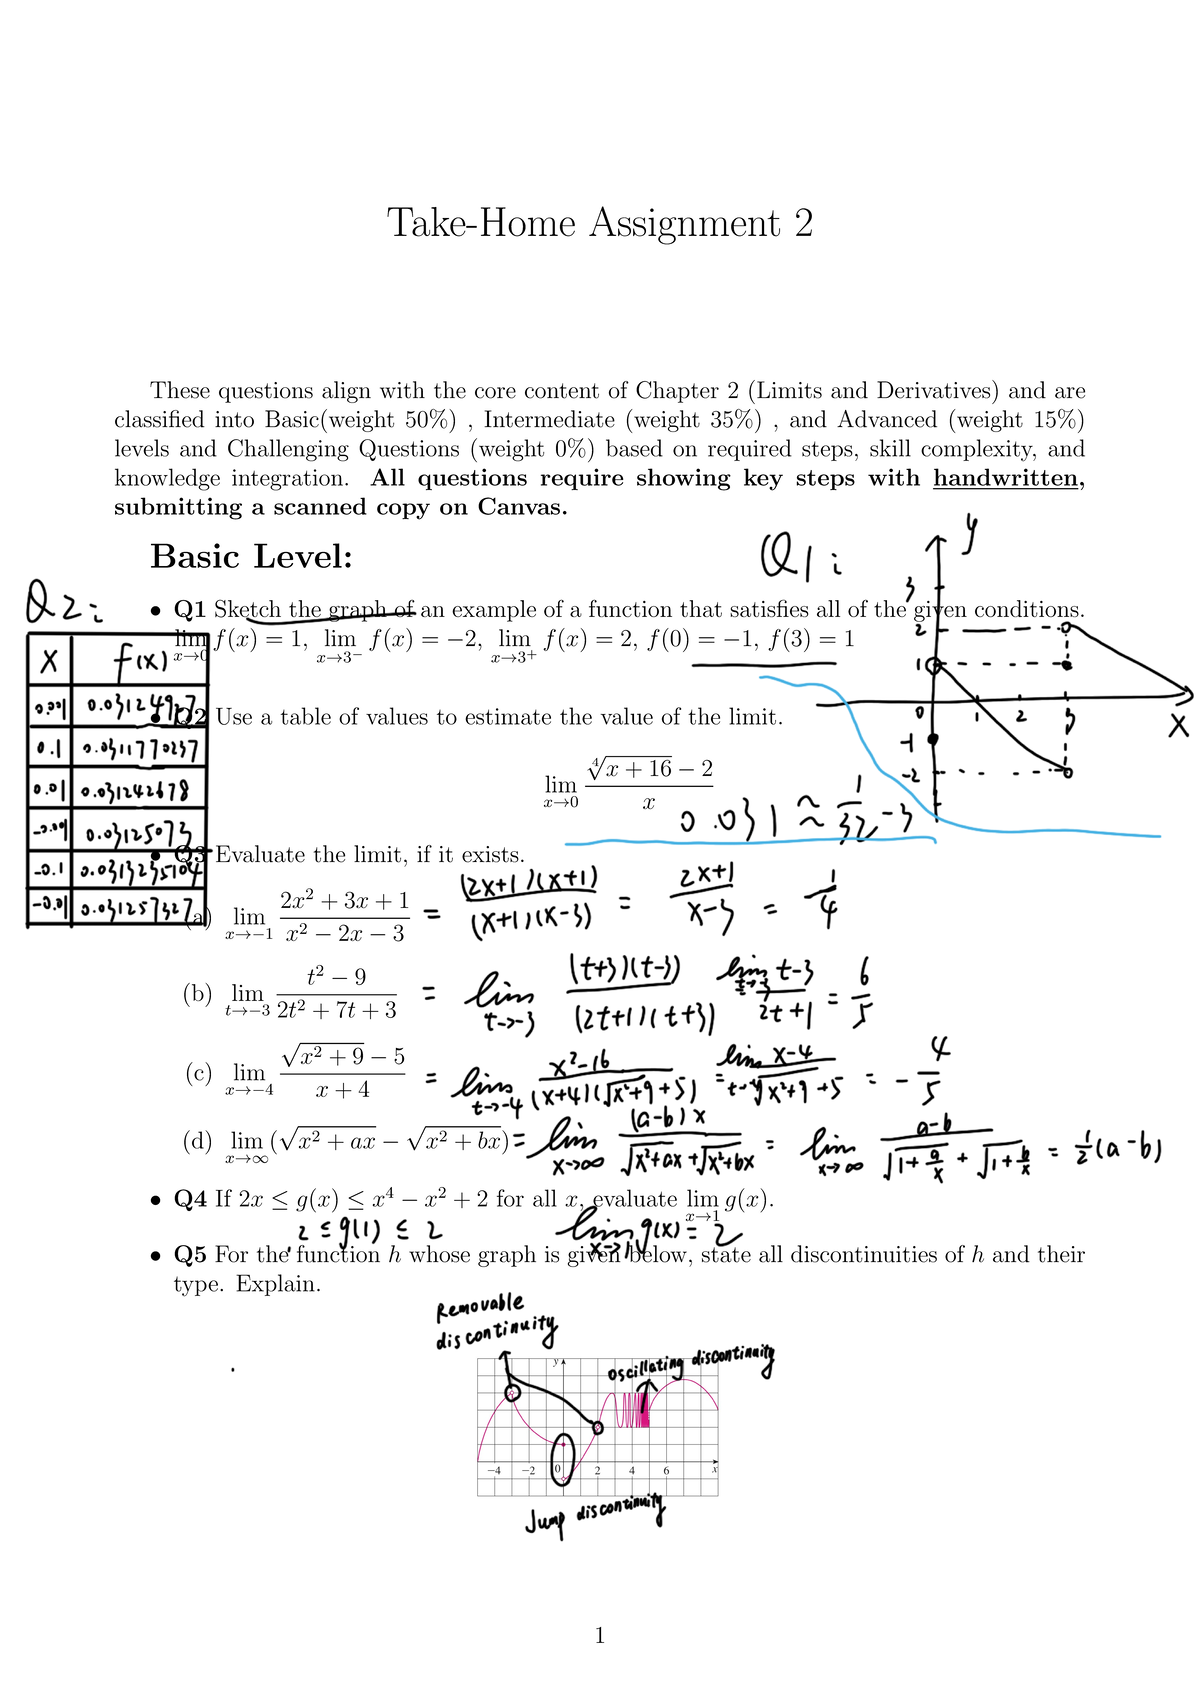 Take-Home Assignment 2
These questions align with the core content of Chapter 2 (Limits and Derivatives) and are
classified into Basic(weight 50%) , Intermediate (weight 35%) , and Advanced (weight 15%)
levels and Challenging Questions (weight 0%) based on required steps, skill complexity, and
knowledge integration. All questions require showing key steps with handwritten,
submitting a scanned copy on Canvas.
Basic Level:
Q1:
y
3
2
1
0 1 2 3 x
-1
-2
-3
• Q1 Sketch the graph of an example of a function that satisfies all of the given conditions.
lim x→0 f(x) = 1, lim x→3⁻ f(x) = −2, lim x→3⁺ f(x) = 2, f(0) = −1, f(3) = 1
Q2:
x f(x)
0.001 0.03124927
0.1 0.0311770237
0.01 0.031242678
-0.001 0.03125073
-0.1 0.0313235104
-0.01 0.031257327
• Q2 Use a table of values to estimate the value of the limit.
lim x→0 (∜(x + 16) − 2)/x
0.031 ≈ 1/32
• Q3 Evaluate the limit, if it exists.
(a) lim x→−1 (2x² + 3x + 1)/(x² − 2x − 3) = (2x+1)(x+1)/(x+1)(x-3) = (2x+1)/(x-3) = -1/4
(b) lim t→−3 (t² − 9)/(2t² + 7t + 3) = lim t→-3 (t+3)(t-3)/(2t+1)(t+3) lim t→-3 (t-3)/(2t+1) = 6/5
(c) lim x→−4 (√(x² + 9) − 5)/(x + 4) = lim t→-4 (x²-16)/(x+4)(√(x²+9)+5) = lim t→-4 (x-4)/(√(x²+9)+5) = -4/5
(d) lim x→∞ (√(x² + ax) − √(x² + bx)) = lim x→∞ (a-b)x/(√(x²+ax)+√(x²+bx)) = lim x→∞ (a-b)/(√(1+a/x)+√(1+b/x)) = 1/2(a-b)
• Q4 If 2x ≤ g(x) ≤ x⁴ − x² + 2 for all x, evaluate lim x→1 g(x).
2 ≤ g(1) ≤ 2 lim x→1 g(x) = 2
• Q5 For the function h whose graph is given below, state all discontinuities of h and their
type. Explain.
Removable
discontinuity
oscillating discontinuity
y
−4 −2 0 2 4 6 x
Jump discontinuity
1